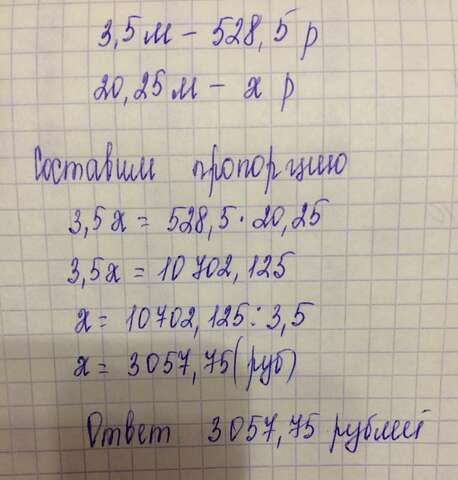 3,5 м – 528,5 р
20,25 м – х р
Составим пропорцию
3,5 х = 528,5 · 20,25
3,5х = 10702,125
х = 10702,125 : 3,5
х = 3057,75 (руб)
Ответ 3057,75 рублей